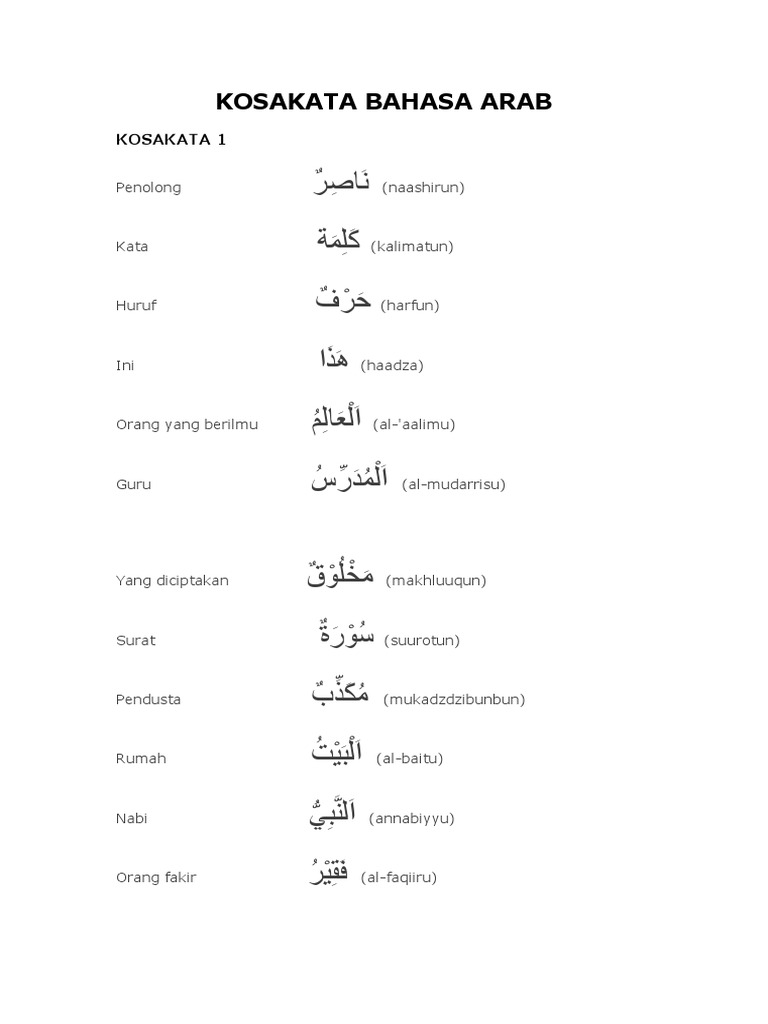 KOSAKATA BAHASA ARAB
KOSAKATA 1
Penolong نَاصِرٌ (naashirun)
Kata كَلِمَة (kalimatun)
Huruf حَرْفٌ (harfun)
Ini هَذَا (haadza)
Orang yang berilmu اَلْعَالِمُ (al-'aalimu)
Guru اَلْمُدَرِّسُ (al-mudarrisu)
Yang diciptakan مَخْلُوْقٌ (makhluuqun)
Surat سُوْرَةٌ (suurotun)
Pendusta مُكَذِّبٌ (mukadzdzibunbun)
Rumah اَلْبَيْتُ (al-baitu)
Nabi اَلنَّبِيُّ (annabiyyu)
Orang fakir فَقِيْرُ (al-faqiiru)